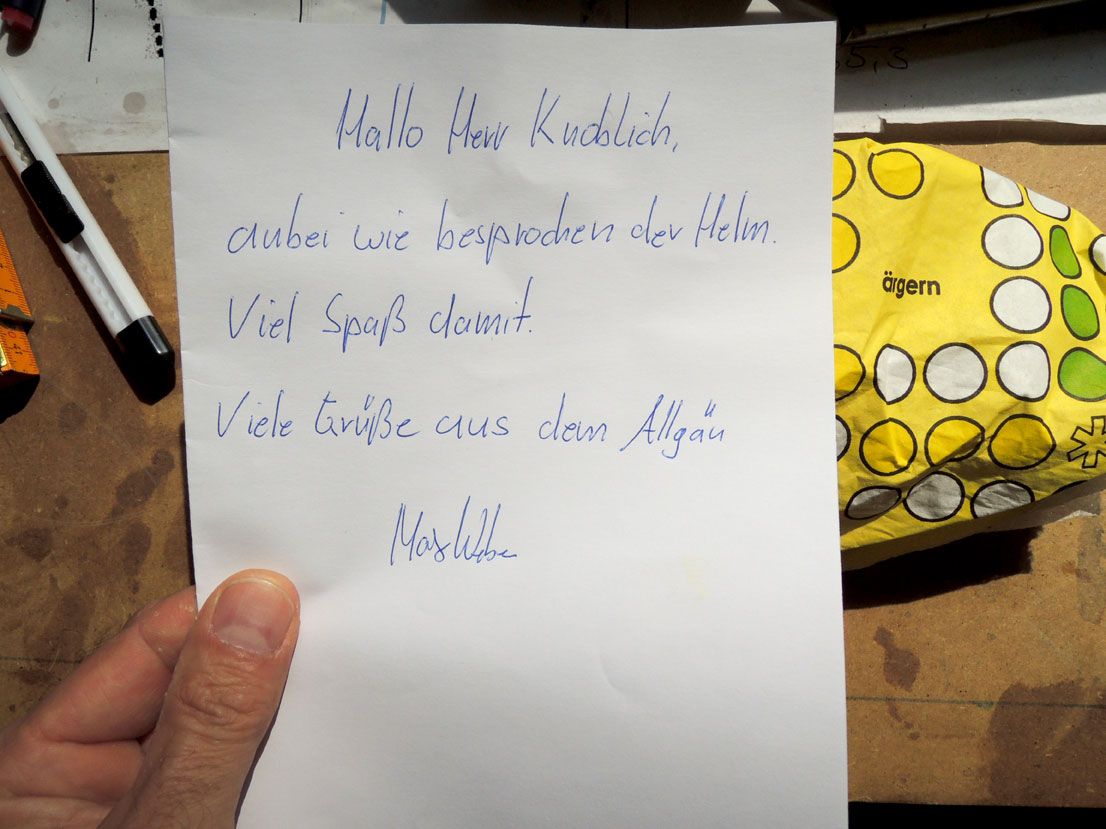 Hallo Herr Knoblich,
anbei wie besprochen der Helm.
Viel Spaß damit.
Viele Grüße aus dem Allgäu
Max
ärgern
5,3